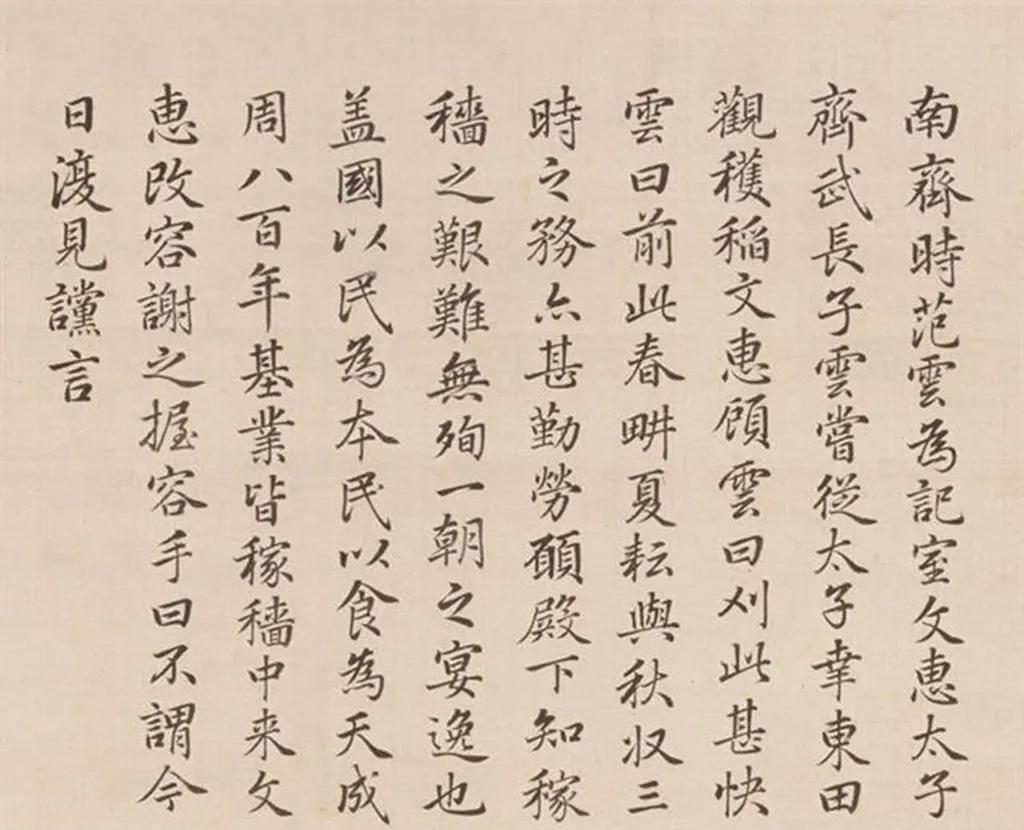 南齊時范雲為記室文惠太子
齊武長子雲嘗従太子幸東田
觀穫稲文惠顾雲曰刈此甚快
雲曰前此春畊夏耘與秋収三
時之務亦甚勤勞願殿下知稼
穡之艱難無殉一朝之宴逸也
盖國以民為本民以食為天成
周八百年基業皆稼穡中来文
惠改容謝之握容手曰不謂今
日復見讜言